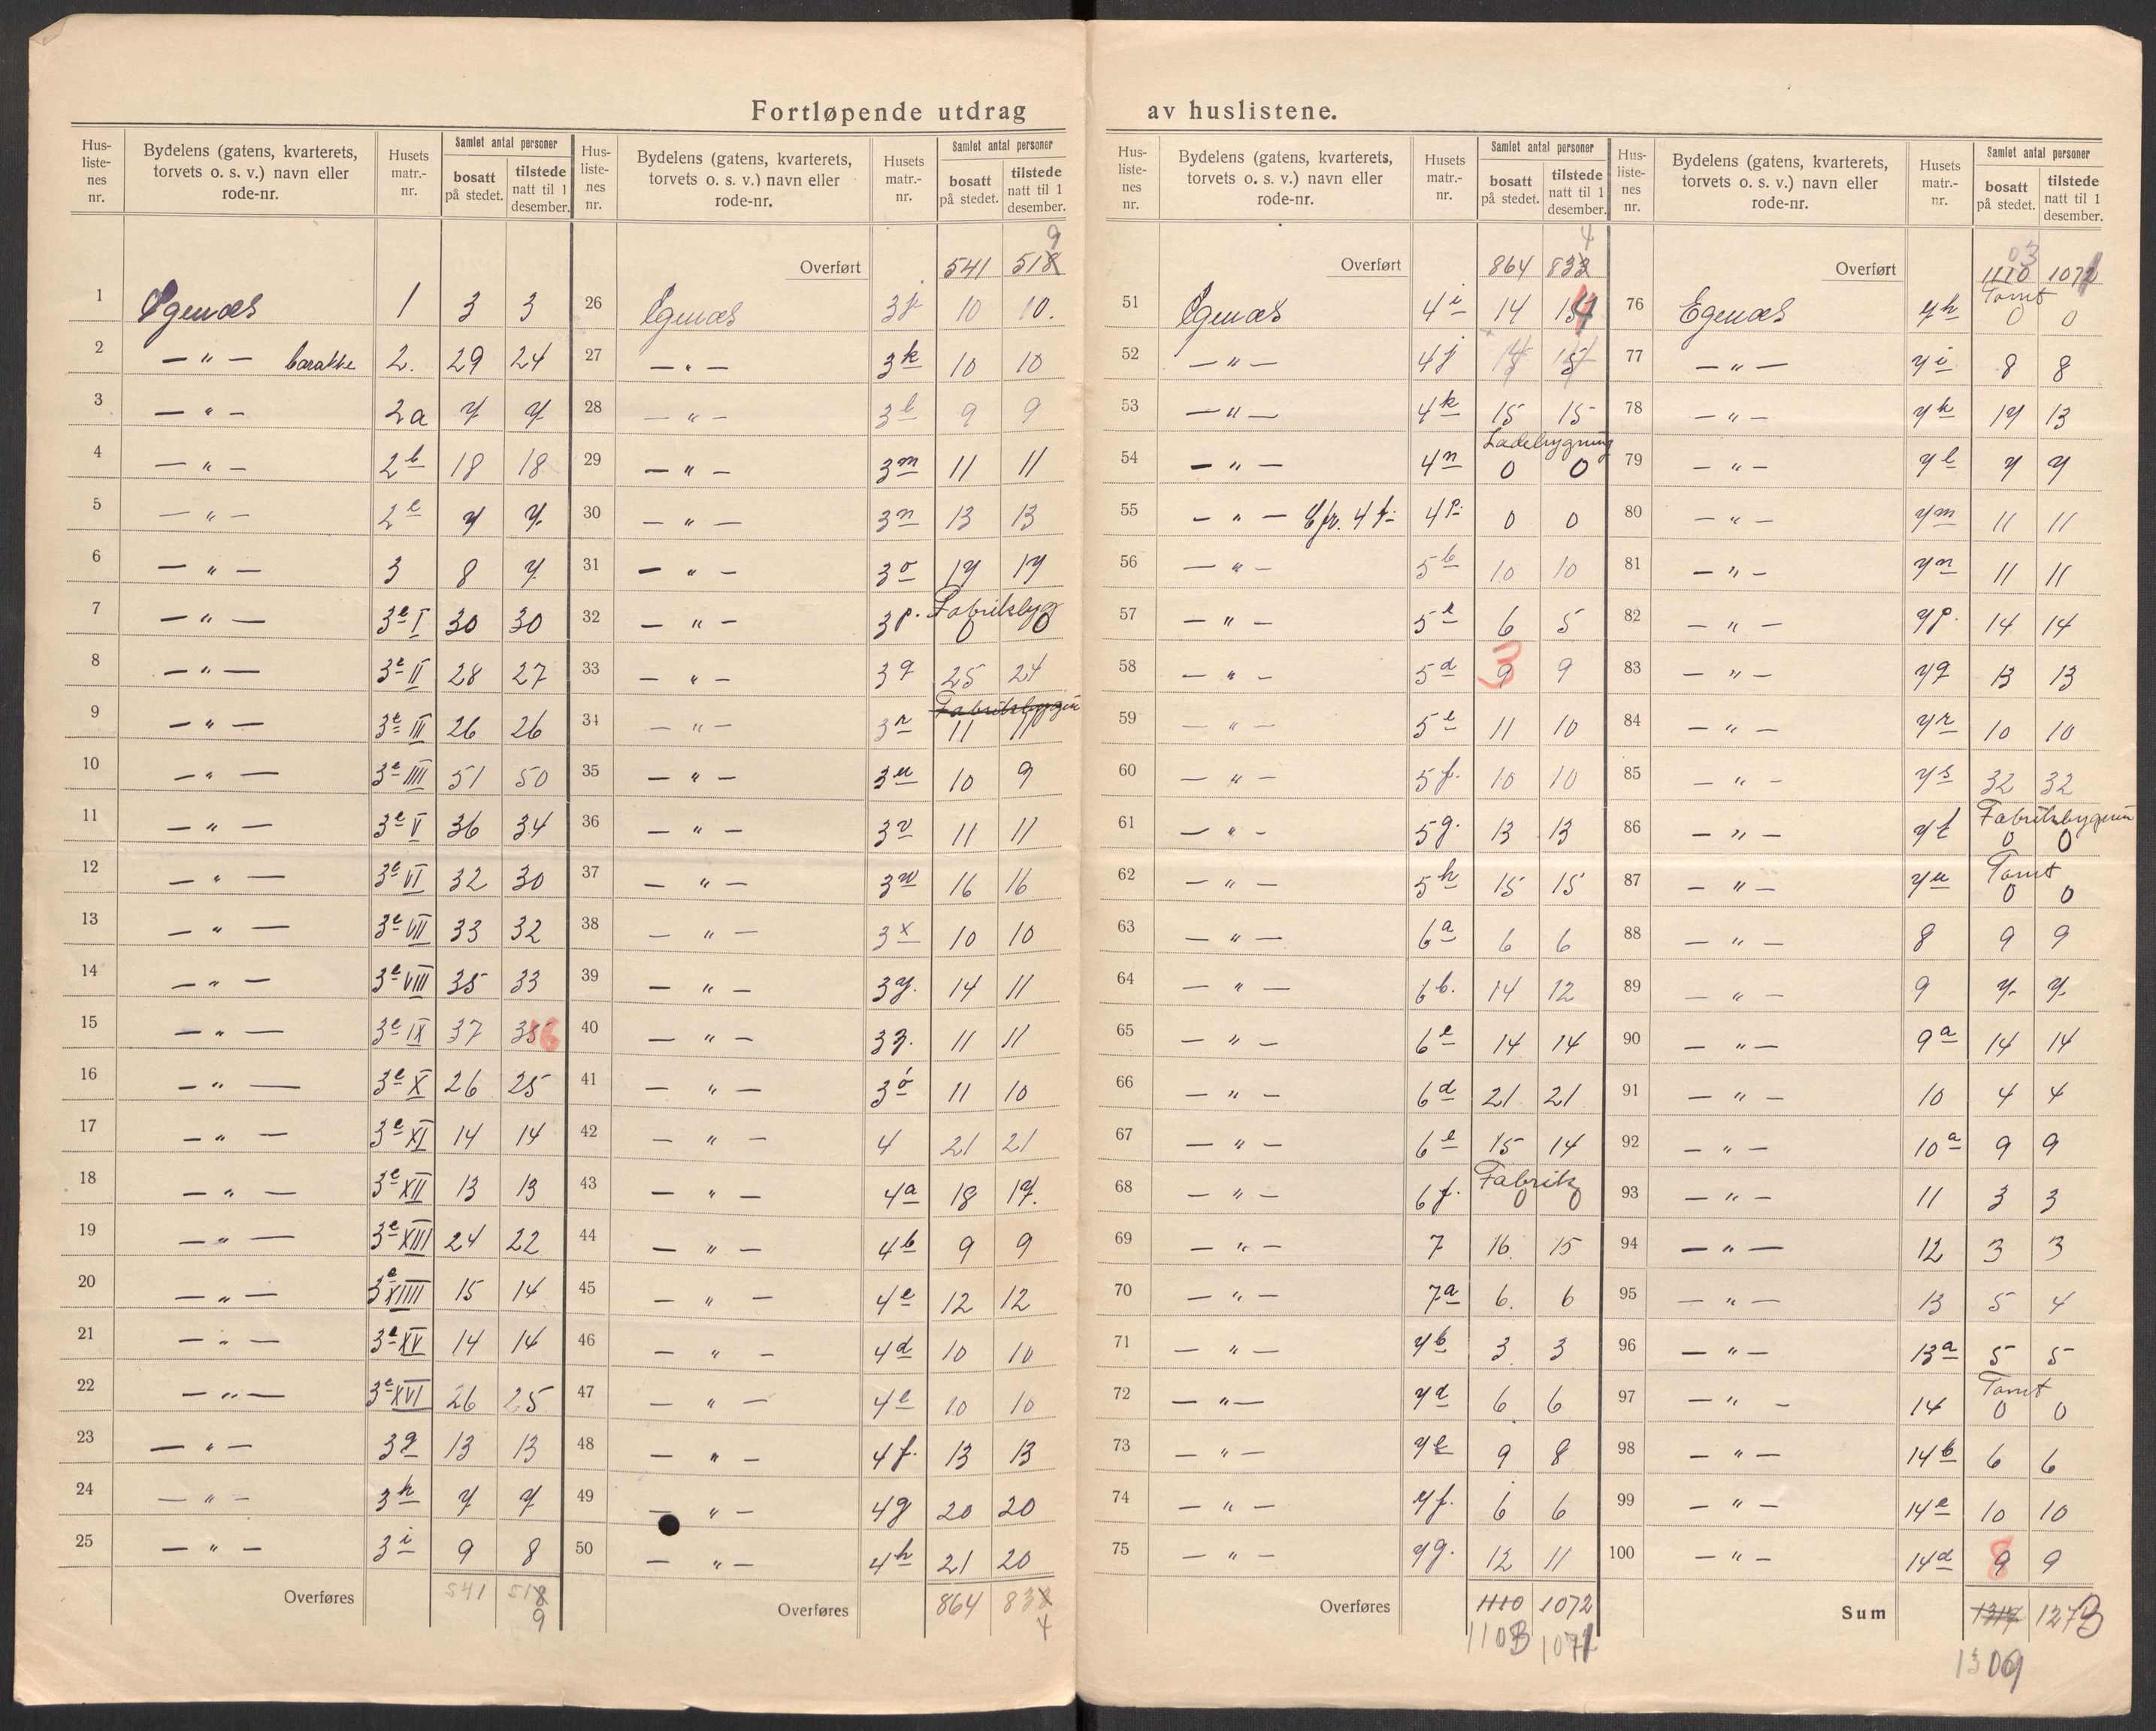 Fortløpende utdrag av huslistene.
Hus-liste-nes nr. | Bydelens (gatens, kvarterets, torvets o. s. v.) navn eller rode-nr. | Husets matr.-nr. | Samlet antal personer bosatt på stedet. | tilstede natt til 1 desember.
1 Egenæs 1 3 3
2 — " — barakke 2. 29 24
3 — " — 2a 7 7
4 — " — 2b 18 18
5 — " — 2c 7 7
6 — " — 3 8 7
7 — " — 3e I 30 30
8 — " — 3e II 28 27
9 — " — 3e III 26 26
10 — " — 3e IIII 51 50
11 — " — 3e V 36 34
12 — " — 3e VI 32 30
13 — " — 3e VII 33 32
14 — " — 3e VIII 35 33
15 — " — 3e IX 37 36
16 — " — 3e X 26 25
17 — " — 3e XI 14 14
18 — " — 3e XII 13 13
19 — " — 3e XIII 24 22
20 — " — 3e XIIII 15 14
21 — " — 3e XV 14 14
22 — " — 3e XVI 26 25
23 — " — 3g 13 13
24 — " — 3h 7 7
25 — " — 3i 9 8
Overføres 541 518
9
Hus-liste-nes nr. | Bydelens (gatens, kvarterets, torvets o. s. v.) navn eller rode-nr. | Husets matr.-nr. | Samlet antal personer bosatt på stedet. | tilstede natt til 1 desember.
9
Overført 541 518
26 Egenæs 3j 10 10.
27 — " — 3k 10 10
28 — " — 3l 9 9
29 — " — 3m 11 11
30 — " — 3n 13 13
31 — " — 3o 17 17
32 — " — 3p. Fabriksbyg 0 0
33 — " — 3q 25 24
34 — " — 3r Fabriksbygin 11 11
35 — " — 3u 10 9
36 — " — 3v 11 11
37 — " — 3w 16 16
38 — " — 3x 10 10
39 — " — 3y. 14 11
40 — " — 3z. 11 11
41 — " — 3ö 11 10
42 — " — 4 21 21
43 — " — 4a 18 17.
44 — " — 4b 9 9
45 — " — 4c 12 12
46 — " — 4d 10 10
47 — " — 4e 10 10
48 — " — 4f. 13 13
49 — " — 4g 20 20
50 — " — 4h 21 20
Overføres 864 833
4
Hus-liste-nes nr. | Bydelens (gatens, kvarterets, torvets o. s. v.) navn eller rode-nr. | Husets matr.-nr. | Samlet antal personer bosatt på stedet. | tilstede natt til 1 desember.
4
Overført 864 833
51 Egenæs 4i 14 14
52 — " — 4j
53 — " — 4k 15 15
54 — " — 4n Ladebygning 0 0
55 — " — Cfr. 4f 4p. 0 0
56 — " — 5b 10 10
57 — " — 5c 6 5
58 — " — 5d 9 9
59 — " — 5e 11 10
60 — " — 5f. 10 10
61 — " — 5g. 13 13
62 — " — 5h 15 15
63 — " — 6a 6 6
64 — " — 6b. 14 12
65 — " — 6c 14 14
66 — " — 6d 21 21
67 — " — 6e 15 14
68 — " — 6f. Fabrik 0 0
69 — " — 7 16. 15
70 — " — 7a 6. 6
71 — " — 7b 3 3
72 — " — 7d 6 6
73 — " — 7e 9 8
74 — " — 7f. 6 6
75 — " — 7g. 12 11
Overføres 1110 1072
1103 1071
Hus-liste-nes nr. | Bydelens (gatens, kvarterets, torvets o. s. v.) navn eller rode-nr. | Husets matr.-nr. | Samlet antal personer bosatt på stedet. | tilstede natt til 1 desember.
03
Overført 1110 1071
76 Egenæs 7h Tomt 0 0
77 — " — 7i 8 8
78 — " — 7k 17 13
79 — " — 7l 7 7
80 — " — 7m 11 11
81 — " — 7n 11 11
82 — " — 7p. 14 14
83 — " — 7q 13 13
84 — " — 7r 10 10
85 — " — 7s 32 32
86 — " — 7t Fabriksbygnin 0 0
87 — " — 7u Tomt 0 0
88 — " — 8 9 9
89 — " — 9 7. 7.
90 — " — 9a 14 14
91 — " — 10 4 4
92 — " — 10a 9 9
93 — " — 11 3 3
94 — " — 12 3 3
95 — " — 13 5 4
96 — " — 13a 5 5
97 — " — 14 Tomt 0 0
98 — " — 14b 6 6
99 — " — 14c 10 10
100 — " — 14d 8 9
Sum 1317 1273
1309